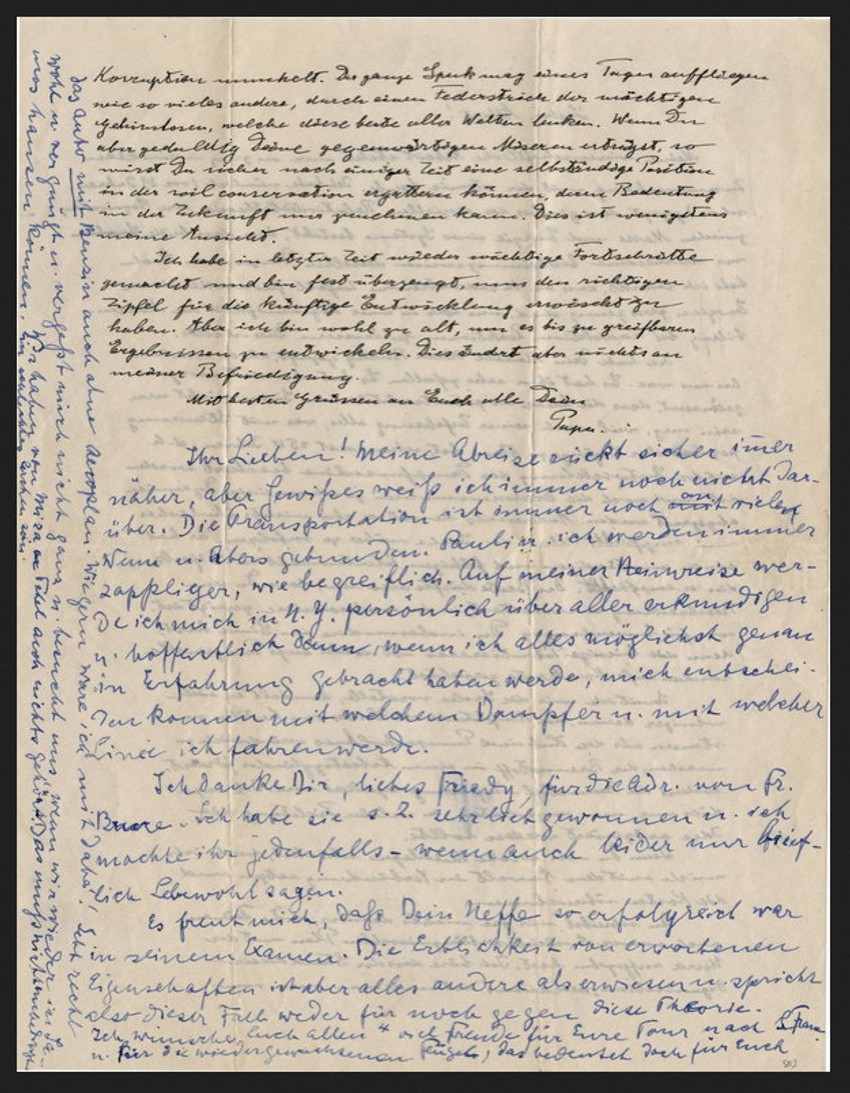 Korruption munkelt. Der ganze Spuk mag eines Tages auffliegen
wie so vieles andere, durch einen Federstrich der mächtigen
Gehirnlosen, welche diese beste aller Welten lenken. Wenn Du
aber geduldig Deine gegenwärtigen Miseren erträgst, so
wirst Du sicher nach einiger Zeit eine selbständige Position
in der soil conservation ergattern können, deren Bedeutung
in der Zukunft nur zunehmen kann. Dies ist wenigstens
meine Ansicht.
Ich habe in letzter Zeit wieder wichtige Fortschritte
gemacht und bin fest überzeugt, nun den richtigen
Zipfel für die künftige Entwicklung erwischt zu
haben. Aber ich bin wohl zu alt, um es bis zu greifbaren
Ergebnissen zu entwickeln. Dies ändert aber nichts an
meiner Befriedigung.
Mit besten Grüssen an Euch alle Dein
Papa.
Ihr Lieben! Meine Abreise rückt sicher im̄er
näher, aber Gewißes weiß ich immer noch nicht dar-
über. Die Transportation ist immer noch an vielen
Wenn u. Abers gebunden. Pauli u. ich werden immer
zappliger, wie begreiflich. Auf meiner Heimreise wer-
de ich mich in N. Y. persönlich über aller erkundigen
u. hoffentlich dann, wenn ich alles möglichst genau
in Erfahrung gebracht haben werde, mich entschei-
den konnen mit welchem Dampfer u. mit welcher
Linie ich fahren werde.
Ich danke Dir, liebes Friedy, für die Adr. von Fr.
Ich habe sie s. Z. sehr lieb gewonnen u. ich
mochte ihr jedenfalls – wenn auch leider nur brief-
lich Lebewohl sagen.
Es freut mich, daß Dein Neffe so erfolgreich war
in seinem Examen. Die Erblichkeit von erworbenen
Eigenschaften ist aber alles andere als erwiesen u. spricht
also dieser Fall weder für noch gegen diese Theorie.
Ich wünsche Euch allen 4 viel Freude für Eure Tour nach S. Fran.
u. für die wiedergewachsenen Flügel, das bedeutet doch für Euch
das Auto mit Benzin auch ohne Aeroplan. Wie gern wäre ich mit dabei! Lebt recht
wohl u. vergnügt u. vergeßt mich nicht ganz u. besucht uns, wenn wir wieder in
mos hausen können. Wir haben von auch nichts gehört. Das muß nichts